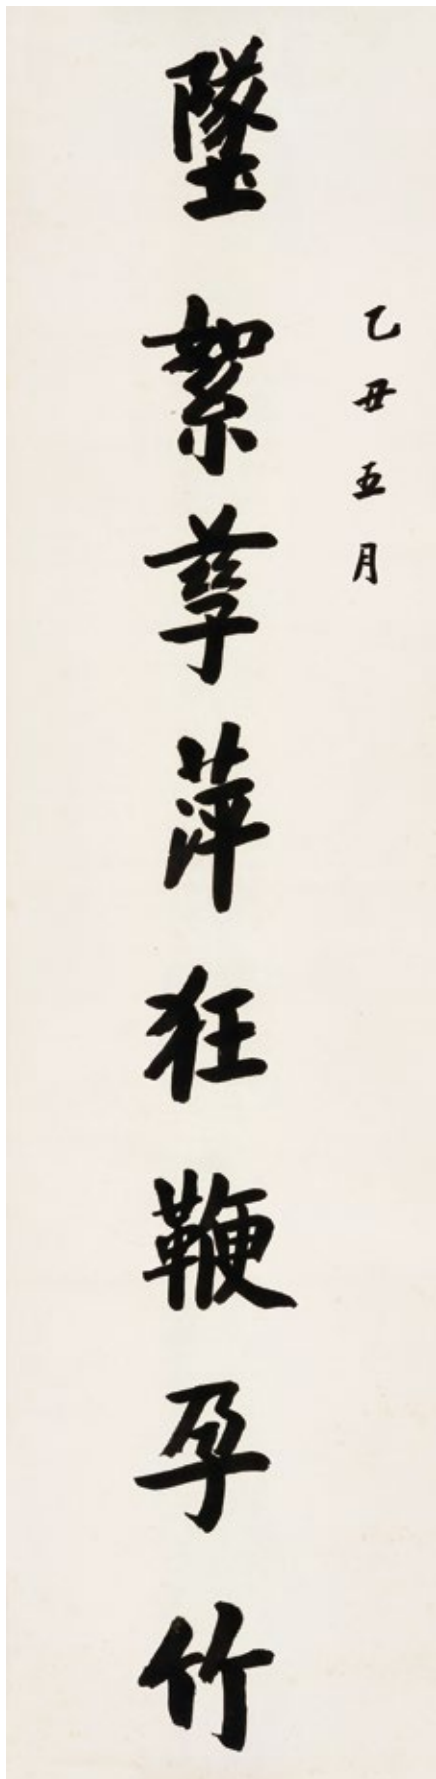 乙丑五月
墜絮孳萍狂鞭孕竹